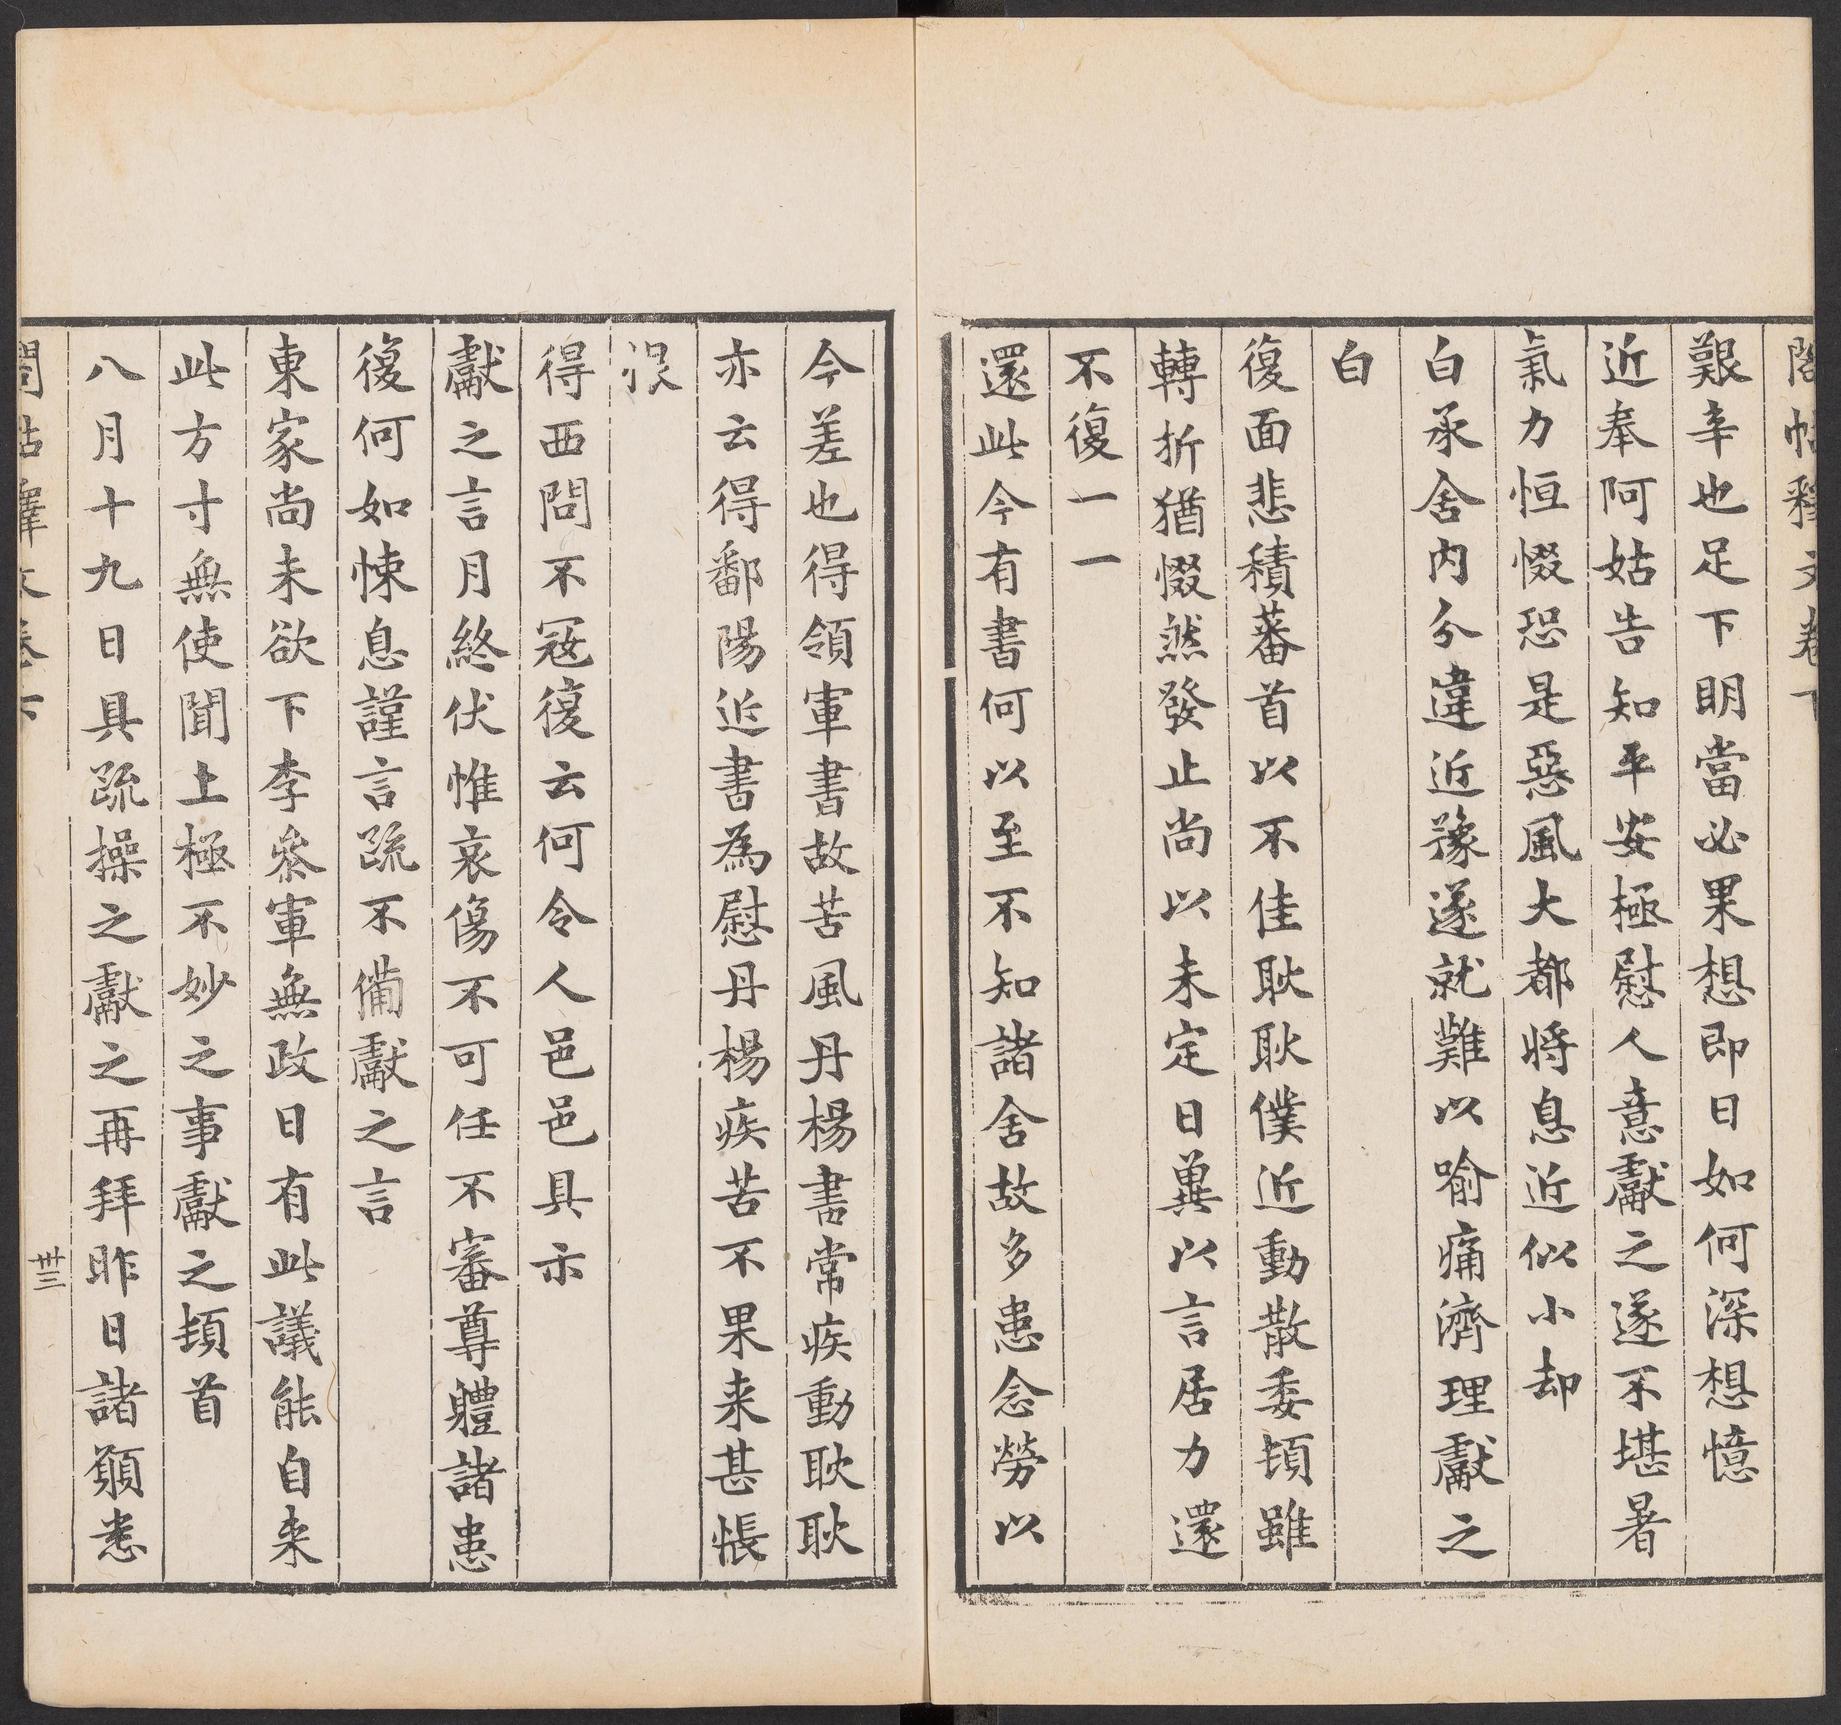 閣帖釋文卷下
艱辛也足下明當必果想即日如何深想憶
近奉阿姑告知平安極慰人意獻之遂不堪暑
氣力恒惙恐是惡風大都將息近似小却
白承舍內分違近豫遂就難以喻痛濟理獻之
白
復面悲積蕃首以不佳耿耿僕近動散委頓雖
轉折猶惙然發止尚以未定日兾以言居力還
不復一一
還此今有書何以至不知諸舍故多患念勞以
今差也得領軍書故苦風丹楊書常疾動耿耿
亦云得鄱陽近書為慰丹楊疾苦不果来甚悵
恨
得西問不寇復云何令人邑邑具示
獻之言月終伏惟哀傷不可任不審尊軆諸患
復何如悚息謹言疏不備獻之言
東家尚未欲下李參軍無政日有此議能自来
此方寸無使聞上極不妙之事獻之頓首
八月十九日具疏操之獻之再拜昨日諸願悉
閣帖釋文卷下
卅三